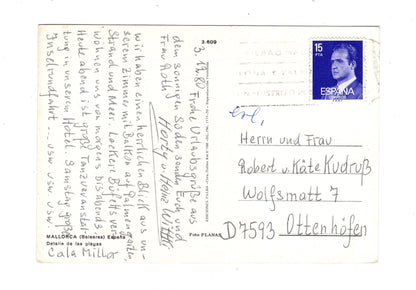 3.609
15
PTA
3. 11.80
Frohe Urlaubsgrüße aus
dem sonnigen Süden senden Euch und
Frau Roth
Herty u. Heinz Wittke
Wir haben einen herrlichen Blick aus un-
serem Zimmer mit Balkon auf Palmengarten
Strand und Meer. Leckere Büfetts ver-
wöhnen uns von morgens bis abends.
Heute abend ist große Tanzveranstal-
tung in unserem Hotel. Samstag große
Inselrundfahrt ... usw usw usw.
MALLORCA (Baleares) España
Detalle de las playas
Cala Millor
Foto PLANAS
erl.
Herrn und Frau
Robert u. Käte Kudruß
Wolfsmatt 7
D 7593 Ottenhöfen